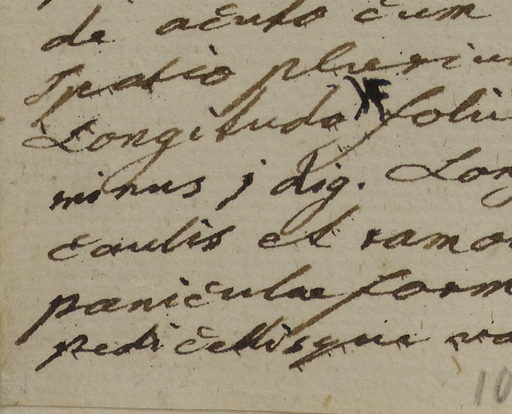 de acuto cum
spatio pluriu
Longitudo foli
minus j dig. Lon
caulis et ramo
paniculae form
pedicellisque va
10